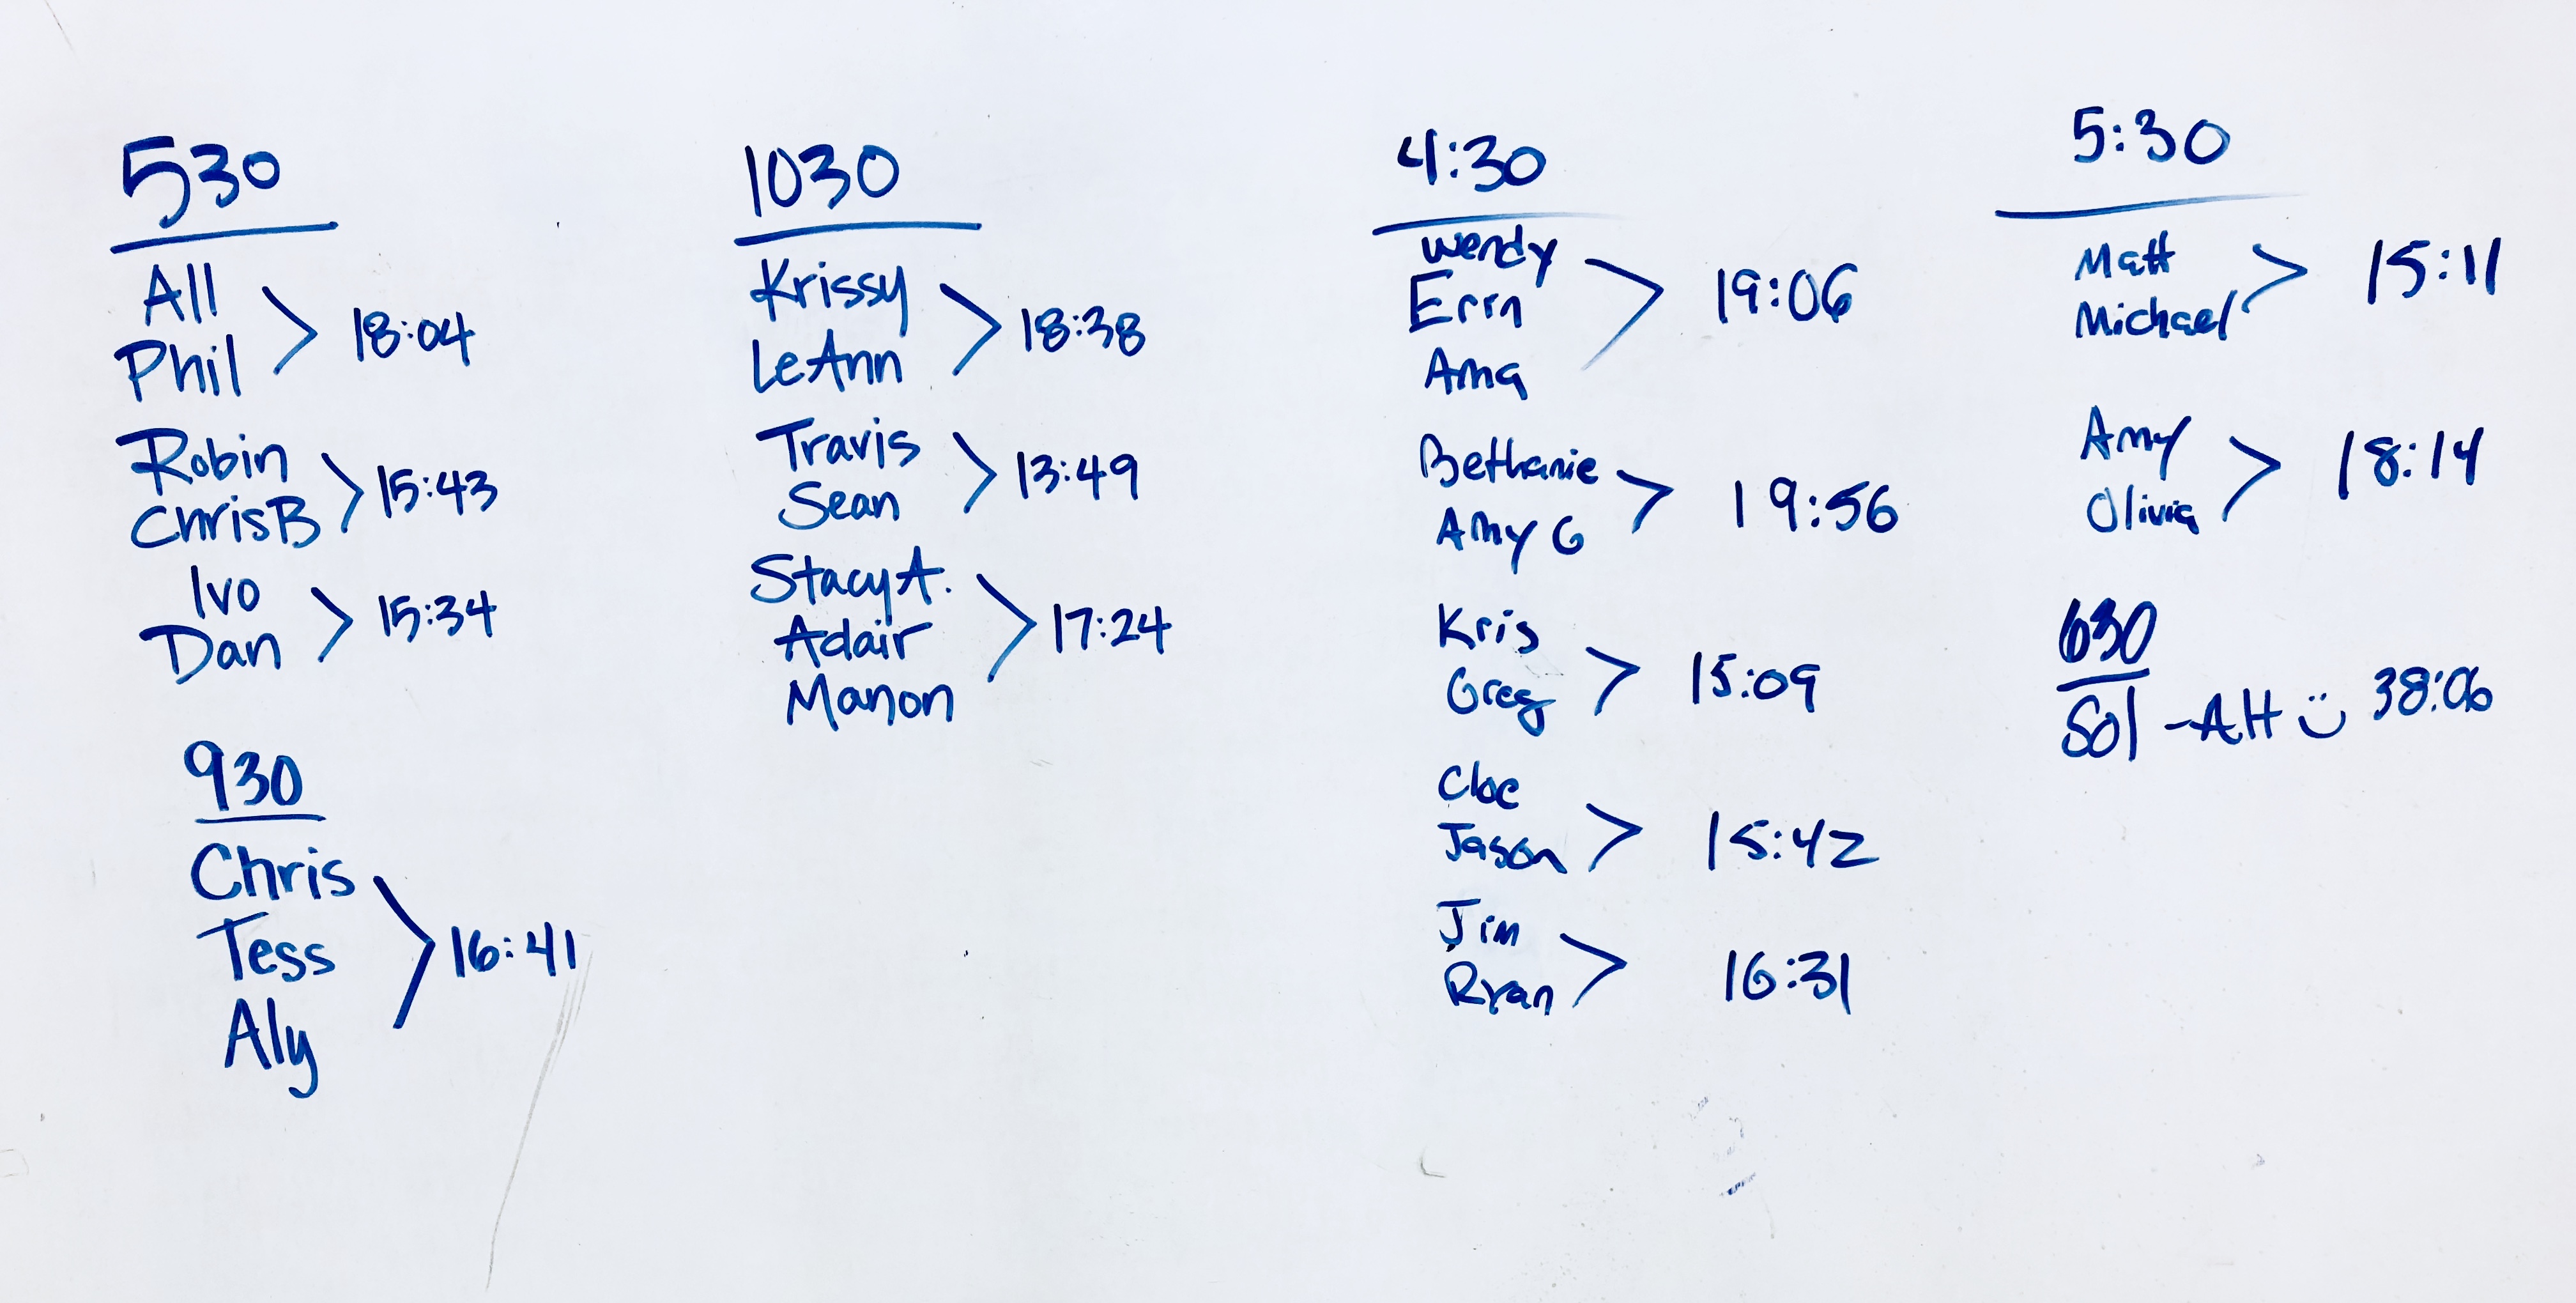 530
All
Phil
18:04
Robin
ChrisB
15:43
Ivo
Dan
15:34
930
Chris
Tess
Aly
16:41
1030
Krissy
LeAnn
18:38
Travis
Sean
13:49
Stacy A.
Adair
Manon
17:24
4:30
Wendy
Erin
Ama
19:06
Bethanie
Amy G
19:56
Kris
Greg
15:09
Cloe
Jason
15:42
Jim
Ryan
16:31
5:30
Matt
Michael
15:11
Amy
Olivia
18:14
630
Sol - Alt 38:06